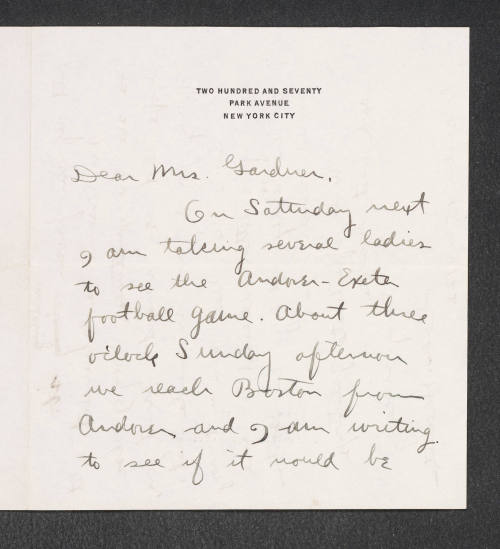 TWO HUNDRED AND SEVENTY
PARK AVENUE
NEW YORK CITY
Dear Mrs. Gardner,
On Saturday next
I am taking several ladies
to see the Andover-Exeter
football game. About three
o'clock Sunday afternoon
we reach Boston from
Andover and I am writing
to see if it would be